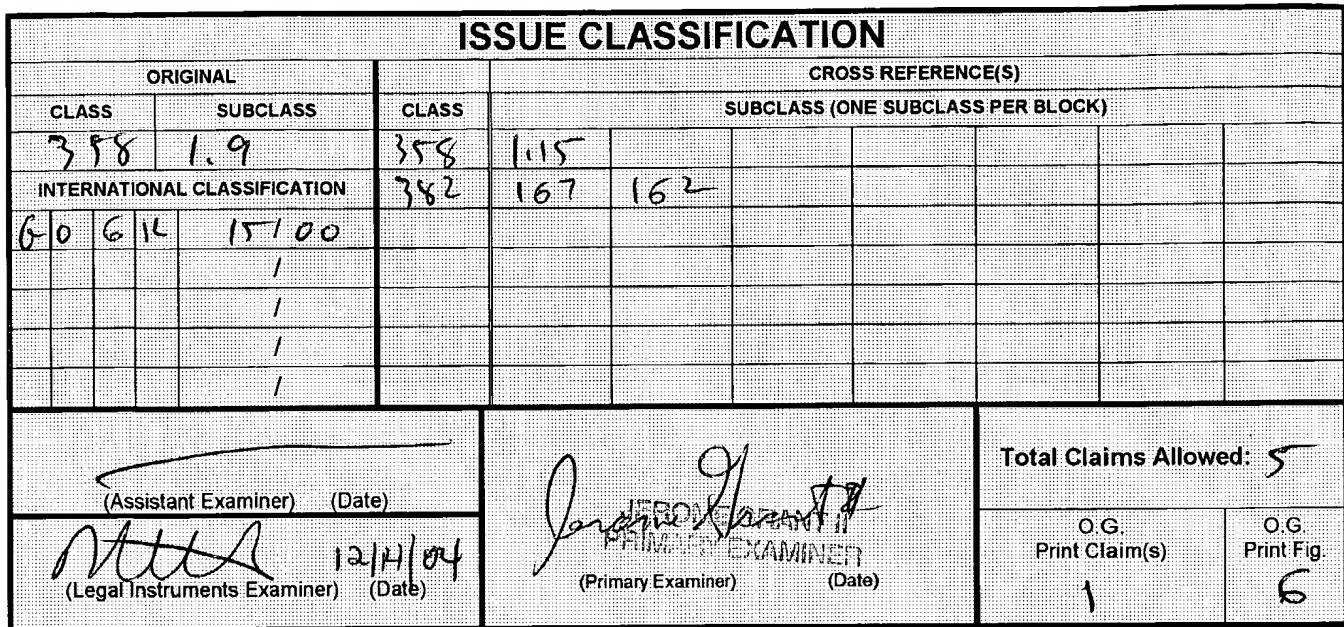 ISSUE CLASSIFICATION
ORIGINAL CROSS REFERENCE(S)
CLASS SUBCLASS CLASS SUBCLASS (ONE SUBCLASS PER BLOCK)
358 1.9 358 1.15
INTERNATIONAL CLASSIFICATION 382 167 162
G 0 6 K 15/00
/
/
/
/
(Assistant Examiner) (Date)
12/ /04
(Legal Instruments Examiner) (Date)
JEROME GRANT II
PRIMARY EXAMINER
(Primary Examiner) (Date)
Total Claims Allowed: 5
O.G. Print Claim(s)
1
O.G. Print Fig.
6